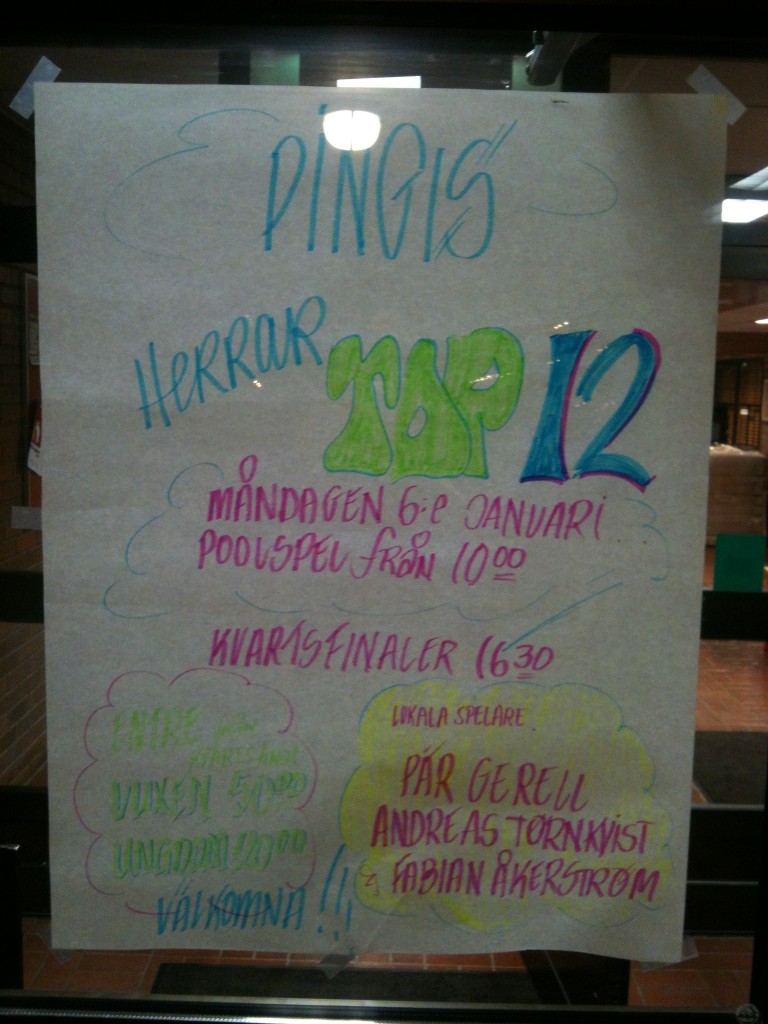 PINGIS
HERRAR TOP 12
MÅNDAGEN 6:e JANUARI
POOLSPEL från 10 00
KVARTSFINALER 16 30
ENTRE från
KVARTSFINAL
VUXEN 50 00
UNGDOM 20 00
VÄLKOMNA !!
LOKALA SPELARE
PÄR GERELL
ANDREAS TØRNKVIST
& FABIAN ÅKERSTRØM